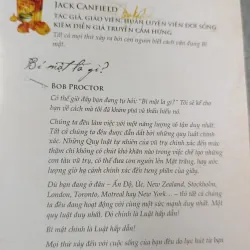 JACK CANFIELD
TÁC GIẢ, GIÁO VIÊN, HUẤN LUYỆN VIÊN ĐỜI SỐNG,
KIÊM DIỄN GIẢ TRUYỀN CẢM HỨNG
Tất cả mọi thứ xảy ra bởi con người biết cách vận dụng Bí
mật.
Bí mật là gì?
BOB PROCTOR
Có thể giờ đây bạn đang tự hỏi "Bí mật là gì?" Tôi sẽ kể cho
bạn về cách mà tôi đã khám phá ra nó như thế nào.
Chúng ta đều làm việc với một năng lượng vô tận duy nhất.
Tất cả chúng ta đều được dẫn dắt bởi những quy luật chính
xác. Những Quy luật tự nhiên của vũ trụ chính xác đến mức
thậm chí không có chút khó khăn nào trong việc chế tạo những
con tàu vũ trụ, có thể đưa con người lên Mặt trăng, hay ước
lượng họ hạ cánh chính xác đến từng phần của giây.
Dù bạn đang ở đâu – Ấn Độ, Úc, New Zealand, Stockholm,
London, Toronto, Montreal hay New York... – thì tất cả chúng
ta đều đang hoạt động với cùng một sức mạnh duy nhất. Một
quy luật duy nhất. Đó chính là Luật hấp dẫn!
Bí mật chính là Luật hấp dẫn!
Mọi thứ xảy đến với cuộc sống của bạn đều do lực hút từ bạn